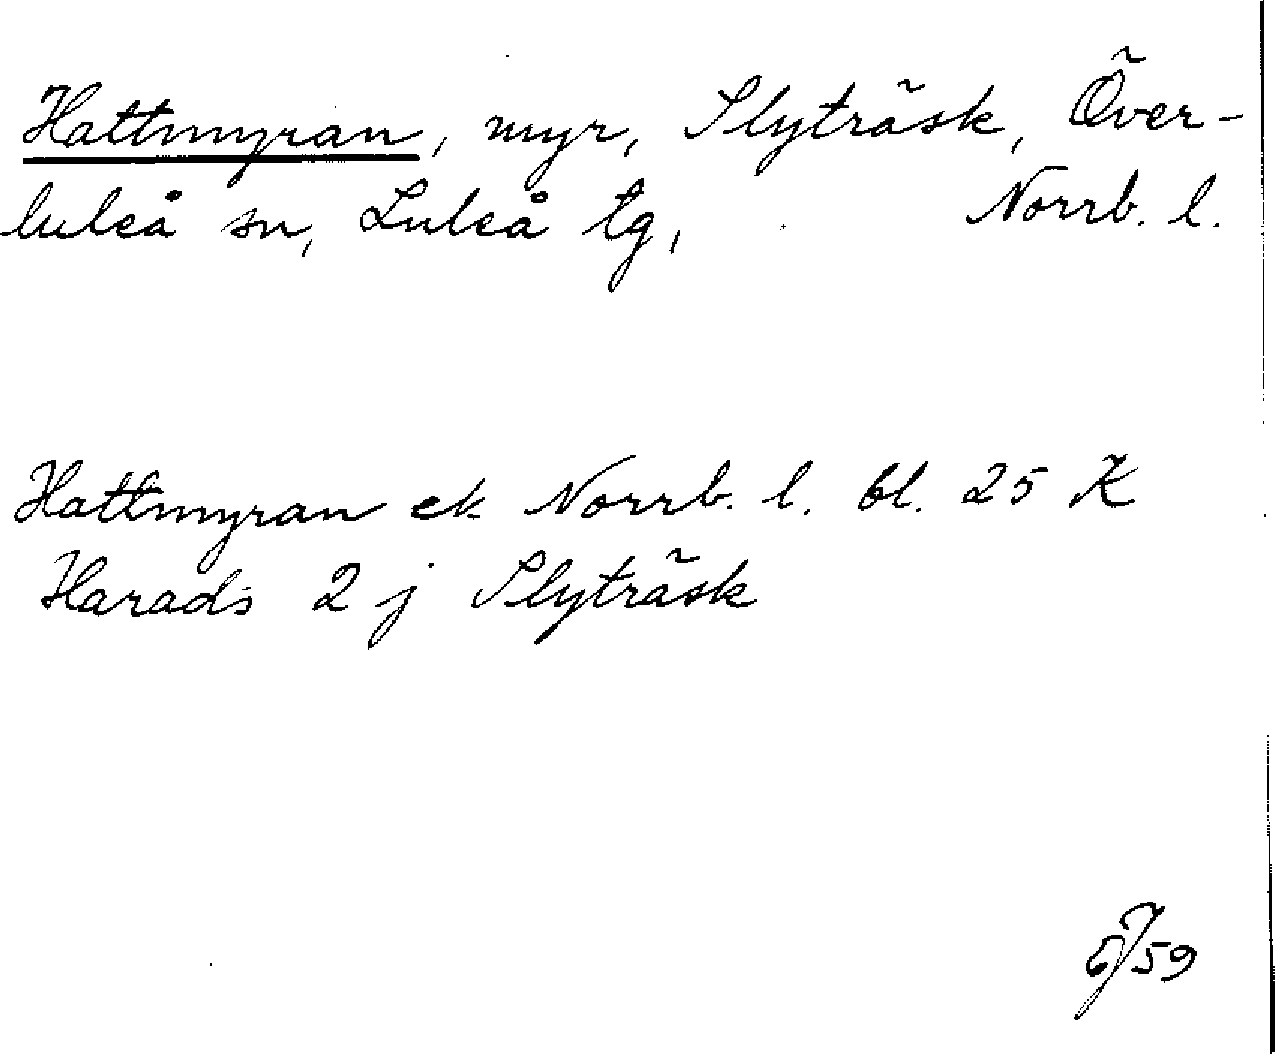 Hattmyran, myr, Slyträsk, Över-
luleå sn, Luleå tg, Norrb. l.
Hattmyran ek Norrb. l. bl. 25 K
Harads 2 j Slyträsk
59